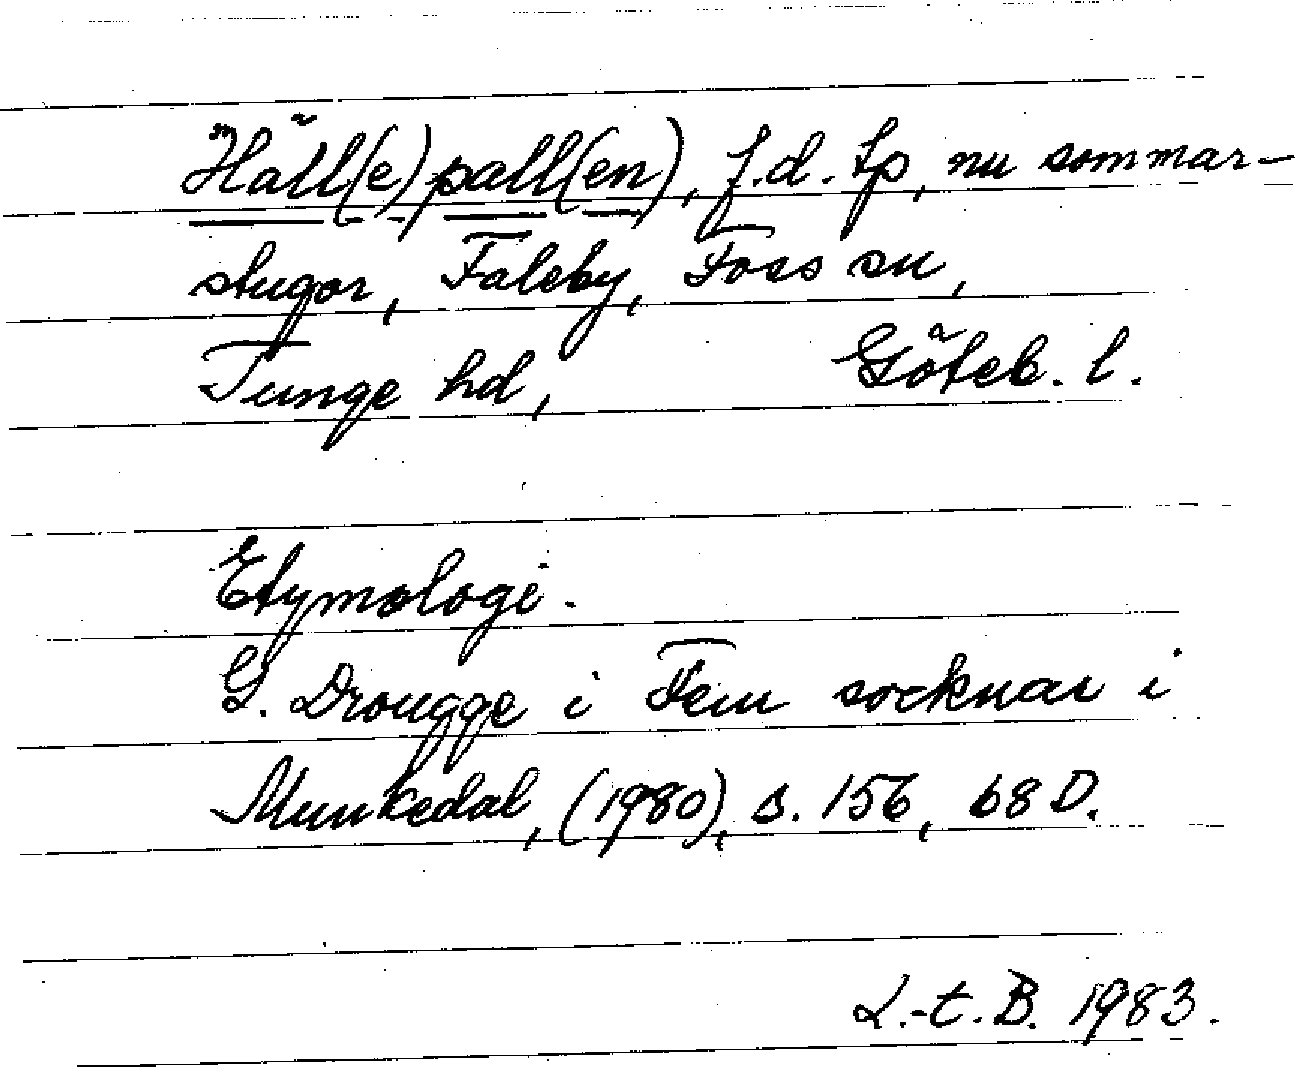 Häll(e)pall(en), f.d. tp, nu sommar-
stugor, Faleby, Foss sn,
Tunge hd, Göteb. l.
Etymologi.
G. Drougge i Fem socknar i
Munkedal, (1980), s. 156, 68 D.
L.-t. B. 1983.